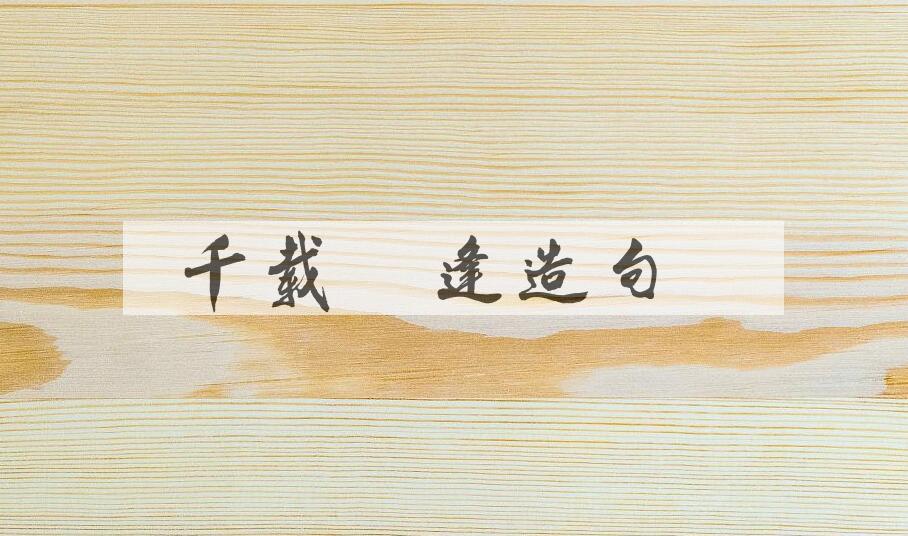 千载 逢造句